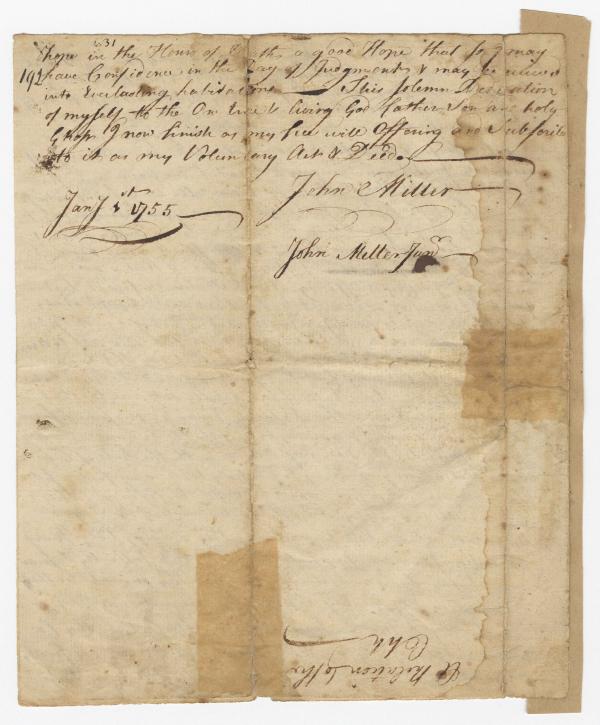 631
hope in the Hour of Death, a good Hope that so I may
192 have Confidence in the Day of Judgment & may be
into Everlasting habitations This Solemn Dedication
of myself to the One true & living God Father Son and holy
Ghost I now finish as my free will Offering and Subscribe
to it as my Voluntary Act & Deed
John Miller
Jany 1st 1755
John Miller Junr
A Relation to the
Chh